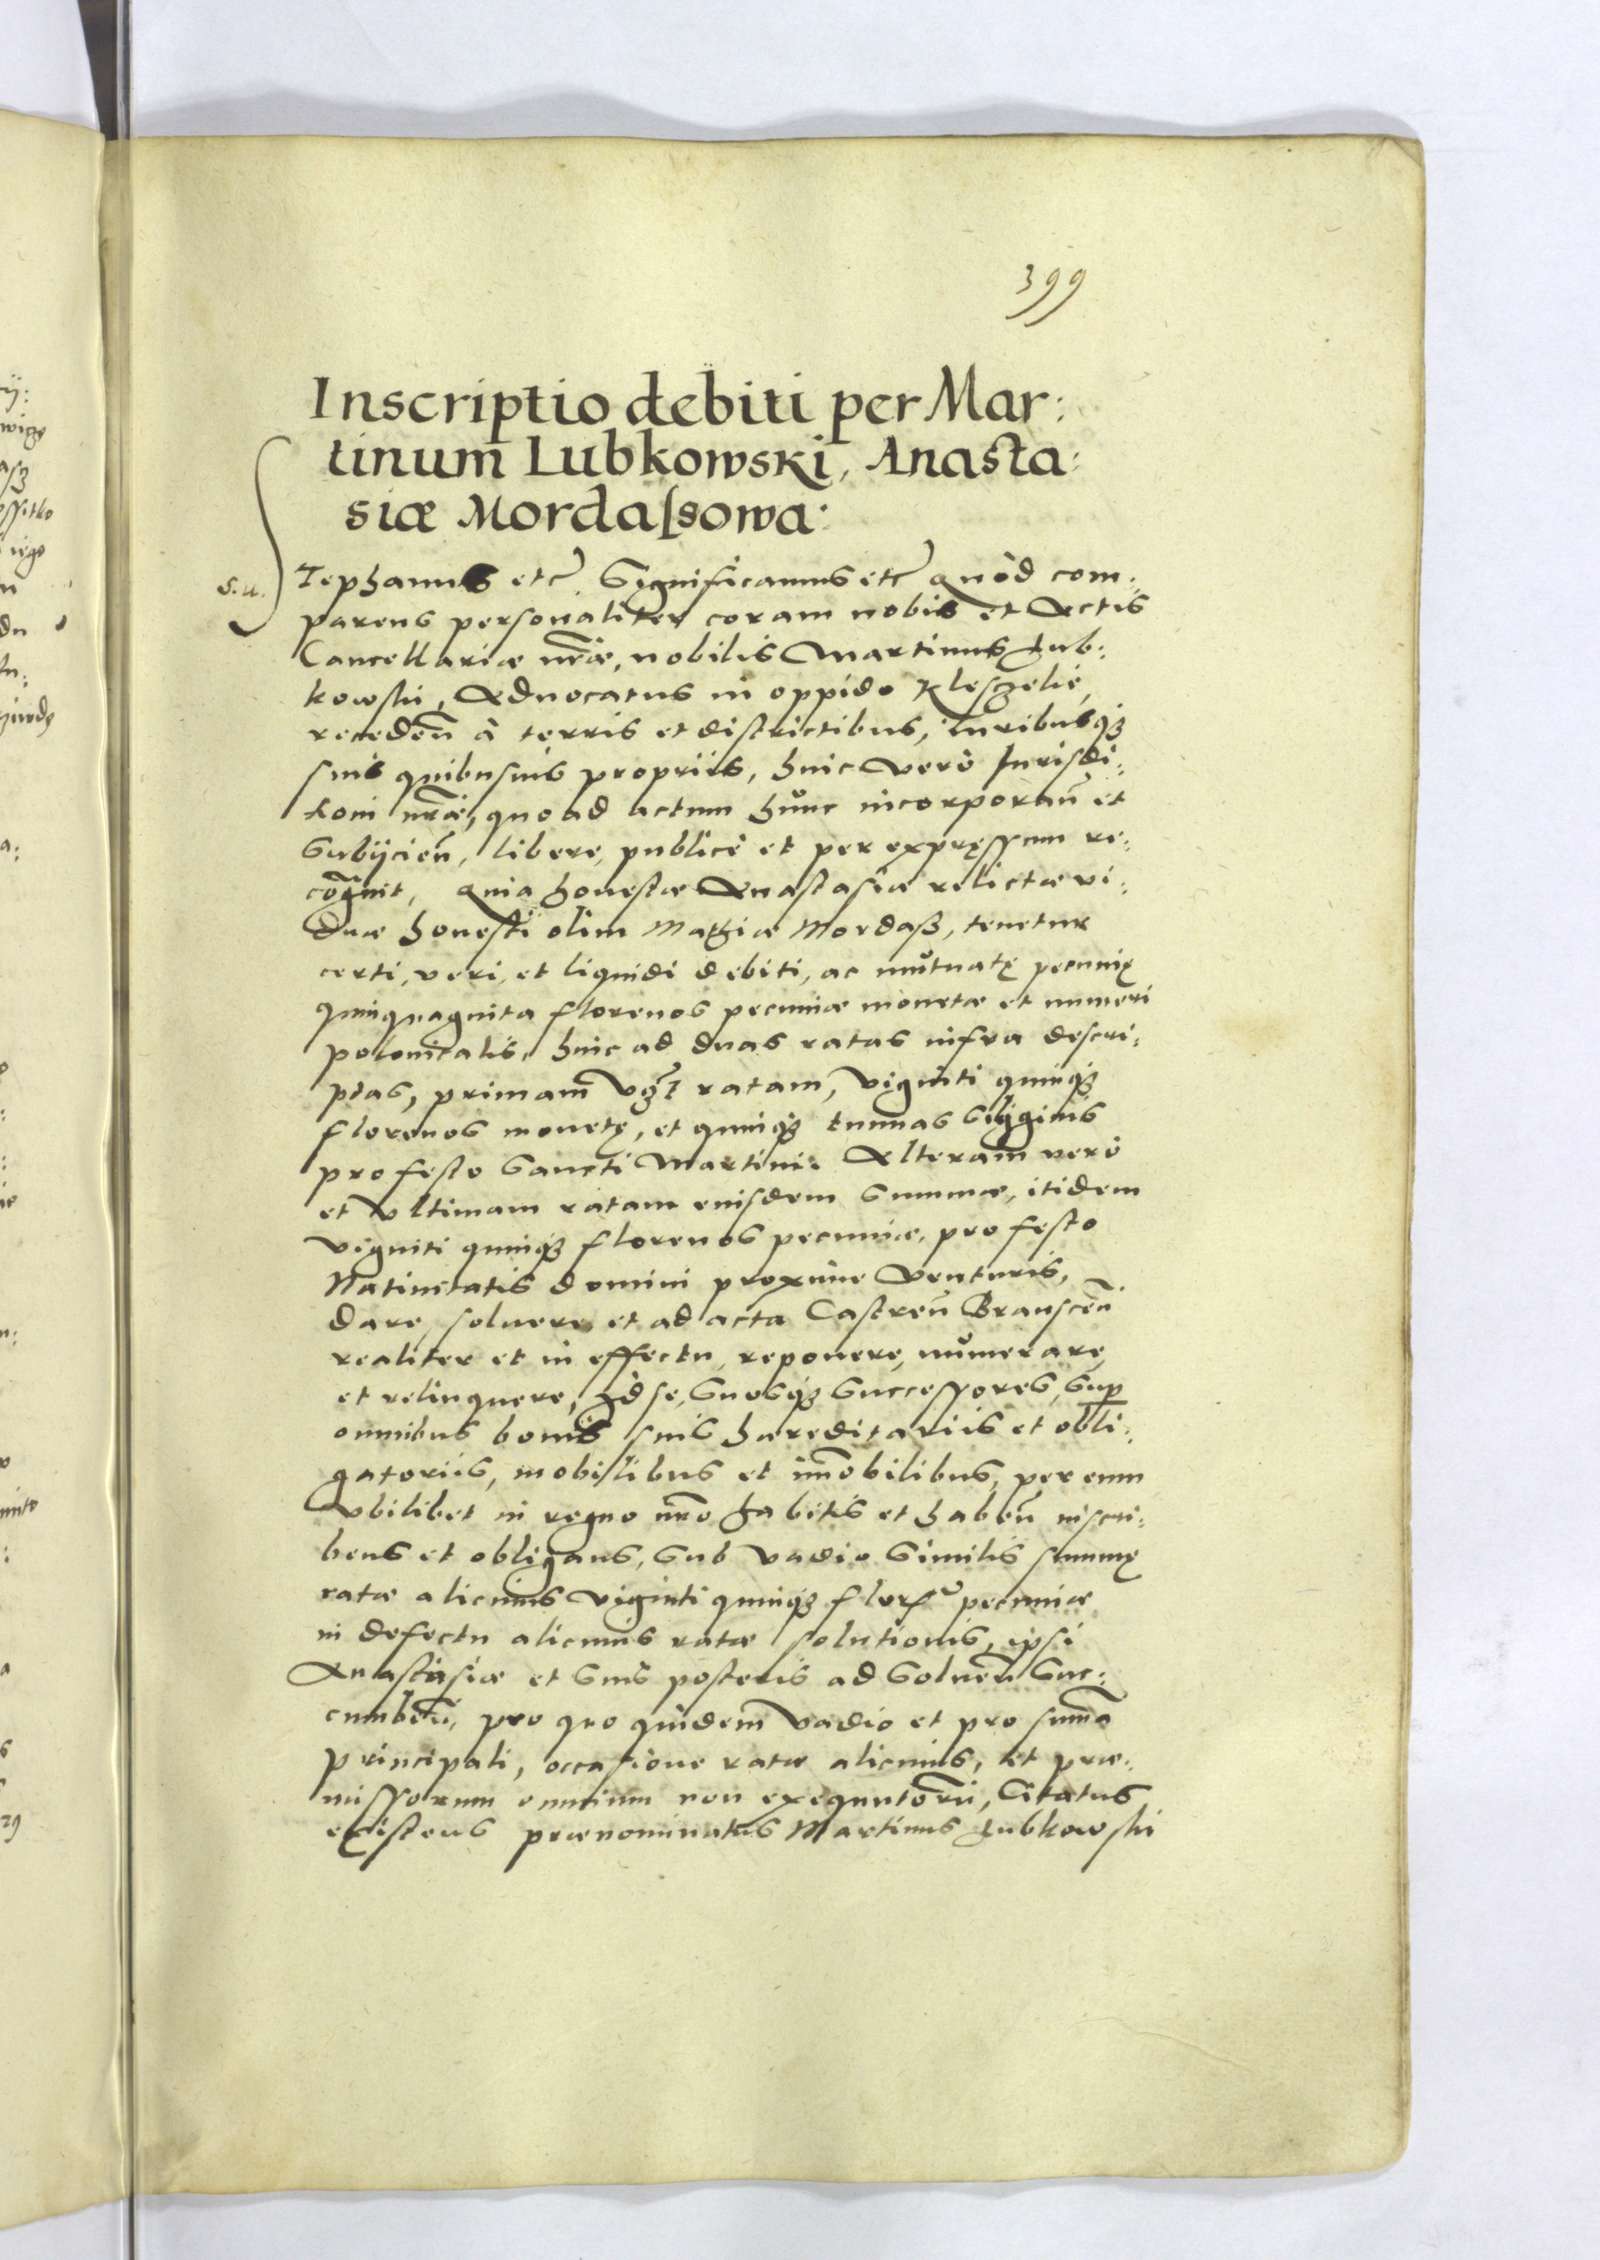 399
Inscriptio debiti per Mar:
tinum Lubkowski, Anasta:
siæ Mordaſsowa:
s. u.
Stephanus etc Significamus etc Quòd com:
parens personaliter coram nobis et Actis
Cancellariæ nræ, nobilis Martinus Lub:
kowski, Aduocatus in oppido Kleszczelie,
receden à terris et districtibus, iuribusq3
suis quibusuis propriis, huic verò Iurisdi:
tioni nræ, quo ad actum hunc incorporan et
subijcien, libere, publicè et per expressum re:
cognit, Quia honestæ Anastasiæ relictæ vi:
duæ honesti olim Mathiæ Mordass, tenetur
certi, veri, et liquidi debiti, ac mutuatę pecunię
quinquaginta florenos pecuniæ monetæ et numeri
polonicalis, huic ad duas ratas infra descri:
ptas, primam vz ratam, viginti quinq3
florenos monetę, et quinq3 tunnas siliginis
pro festo Sancti Martini. Alteram verò
et vltimam ratam eiusdem summæ, itidem
viginti quinq3 florenos pecuniæ, pro festo
Natiuitatis Domini proxime venturis,
dare, soluere, et ad acta Castren Branscen
realiter et in effectu, reponere, numerare,
et relinquere, Id se, suosq3 successores, sup
omnibus bonis suis hæreditariis et obli:
gatoriis, mobilibus et imobilibus, per eum
vbilibet in regno nro habitis et haben inscri:
bens et obligans, sub vadio similis summę
ratæ alicuius viginti quinq3 flor pecuniæ
in defectu alicuius ratæ solutionis, ipsi
Anastasiæ et suis posteris ad soluen suc:
cumben, pro quo quidem vadio et pro suma
principali, occasione ratæ alicuius, et præ:
missorum omnium non exequutoru, Citatus
existens prænominatus Martinus Lubkowski